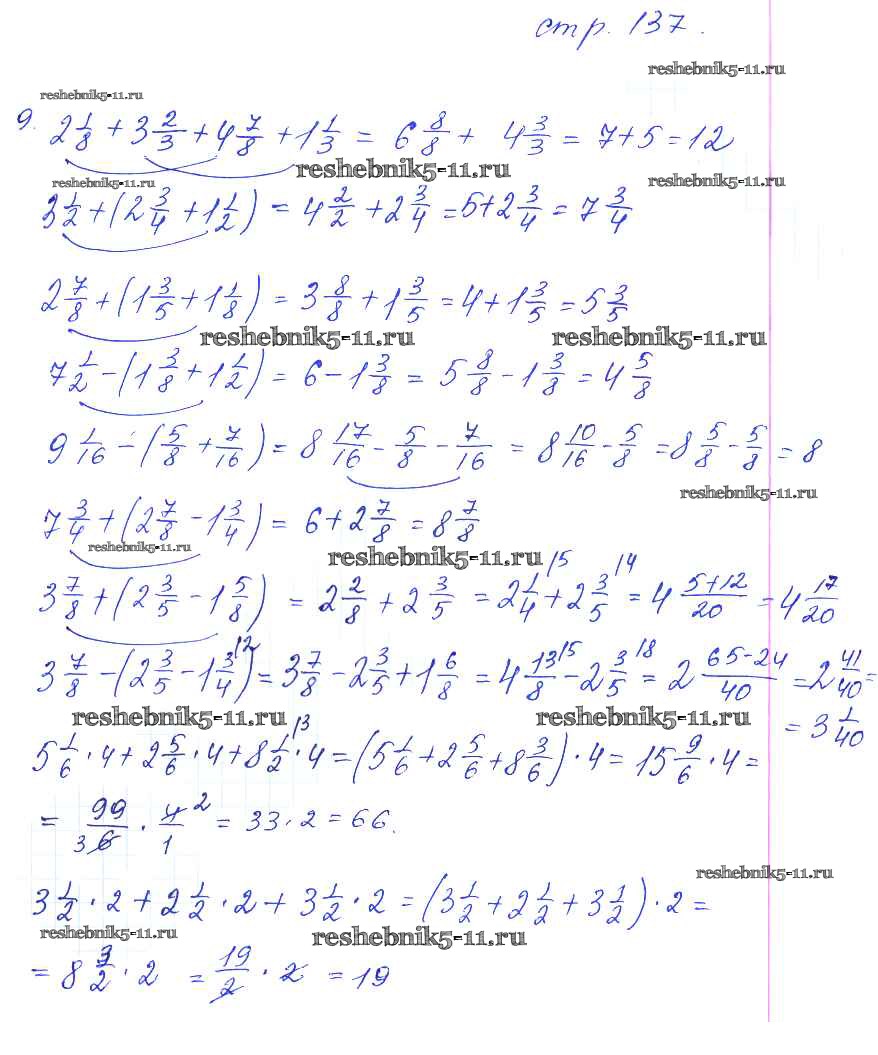 стр. 137.
reshebnik5-11.ru
reshebnik5-11.ru
9. 2 1/8 + 3 2/3 + 4 7/8 + 1 1/3 = 6 8/8 + 4 3/3 = 7 + 5 = 12
reshebnik5-11.ru
reshebnik5-11.ru
reshebnik5-11.ru
3 1/2 + (2 3/4 + 1 1/2) = 4 2/2 + 2 3/4 = 5 + 2 3/4 = 7 3/4
2 7/8 + (1 3/5 + 1 1/8) = 3 8/8 + 1 3/5 = 4 + 1 3/5 = 5 3/5
reshebnik5-11.ru reshebnik5-11.ru
7 1/2 - (1 3/8 + 1 1/2) = 6 - 1 3/8 = 5 8/8 - 1 3/8 = 4 5/8
9 1/16 - (5/8 + 7/16) = 8 17/16 - 5/8 - 7/16 = 8 10/16 - 5/8 = 8 5/8 - 5/8 = 8
reshebnik5-11.ru
7 3/4 + (2 7/8 - 1 3/4) = 6 + 2 7/8 = 8 7/8
reshebnik5-11.ru
reshebnik5-11.ru
3 7/8 + (2 3/5 - 1 5/8) = 2 2/8 + 2 3/5 = 2 1/4 /5 + 2 3/5 /4 = 4 5+12/20 = 4 17/20
3 7/8 - (2 3/5 - 1 3/4 /2) = 3 7/8 - 2 3/5 + 1 6/8 = 4 13/8 /5 - 2 3/5 /8 = 2 65-24/40 = 2 41/40 =
= 3 1/40
reshebnik5-11.ru reshebnik5-11.ru
5 1/6 · 4 + 2 5/6 · 4 + 8 1/2 /3 · 4 = (5 1/6 + 2 5/6 + 8 3/6) · 4 = 15 9/6 · 4 =
= 99/6 3 · 4/1 2 = 33 · 2 = 66.
reshebnik5-11.ru
3 1/2 · 2 + 2 1/2 · 2 + 3 1/2 · 2 = (3 1/2 + 2 1/2 + 3 1/2) · 2 =
reshebnik5-11.ru reshebnik5-11.ru
= 8 3/2 · 2 = 19/2 · 2 = 19